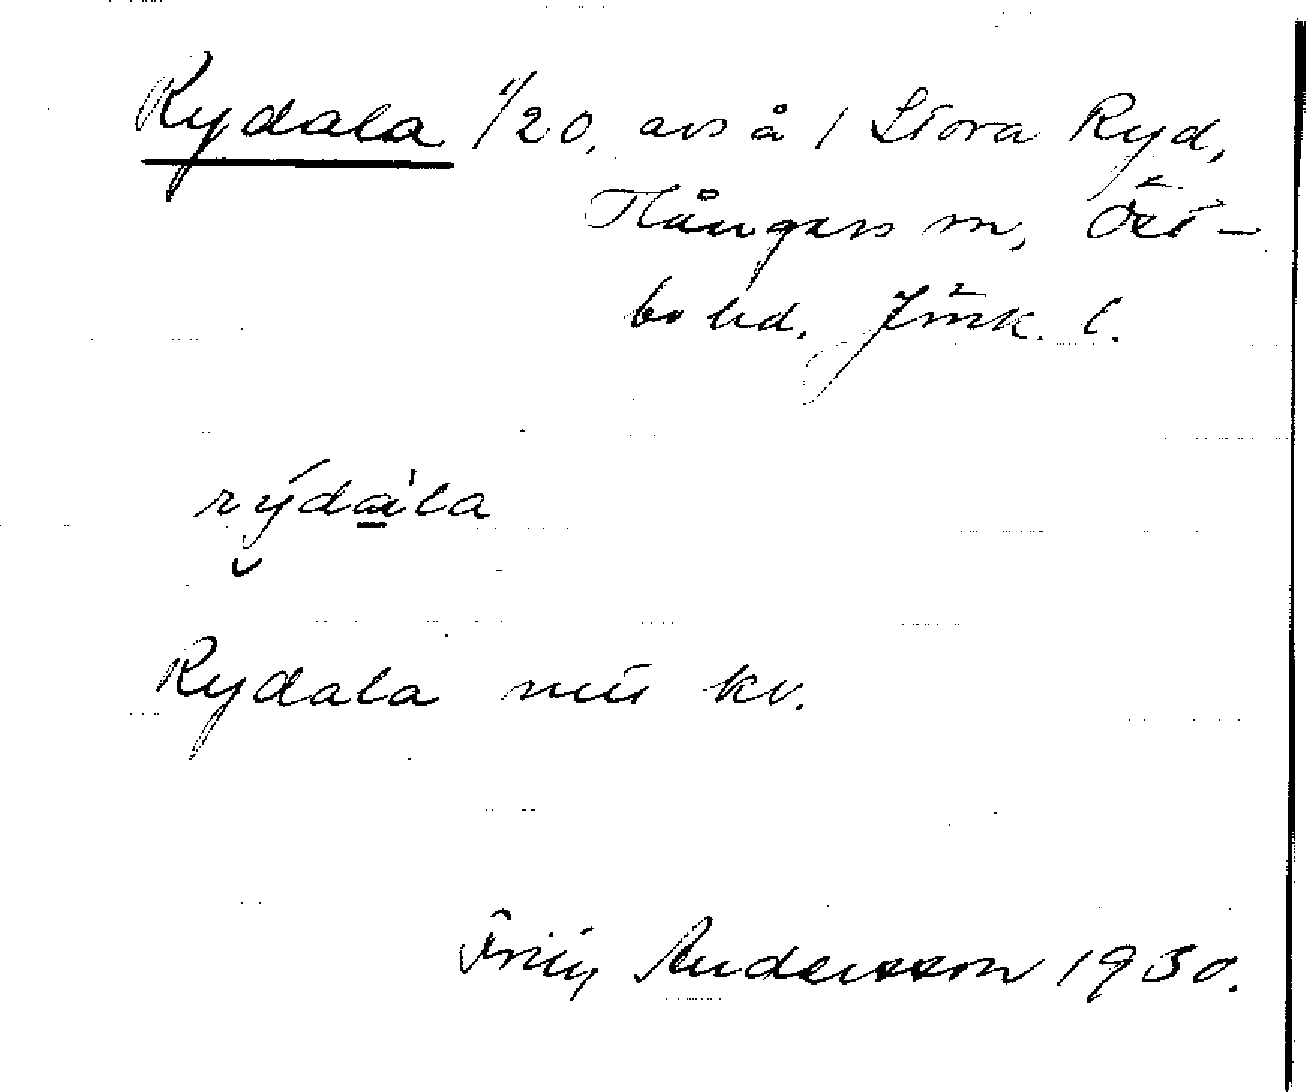 Rydala 1/20, avs å 1 Stora Ryd,
Hångers sn, Öst-
bo hd. Jönk. l.
rýda̱ˈla
Rydala mtr kv.
Fritz Andersson 1930.